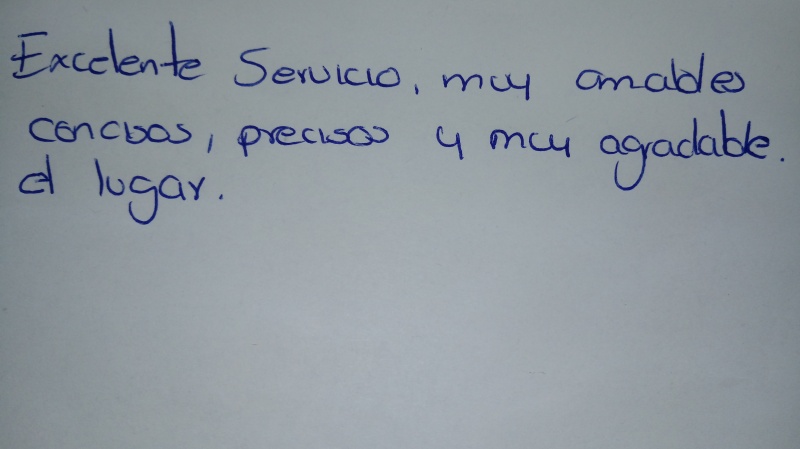 Excelente Servicio, muy amables
concisos, precisos y muy agradable.
el lugar.